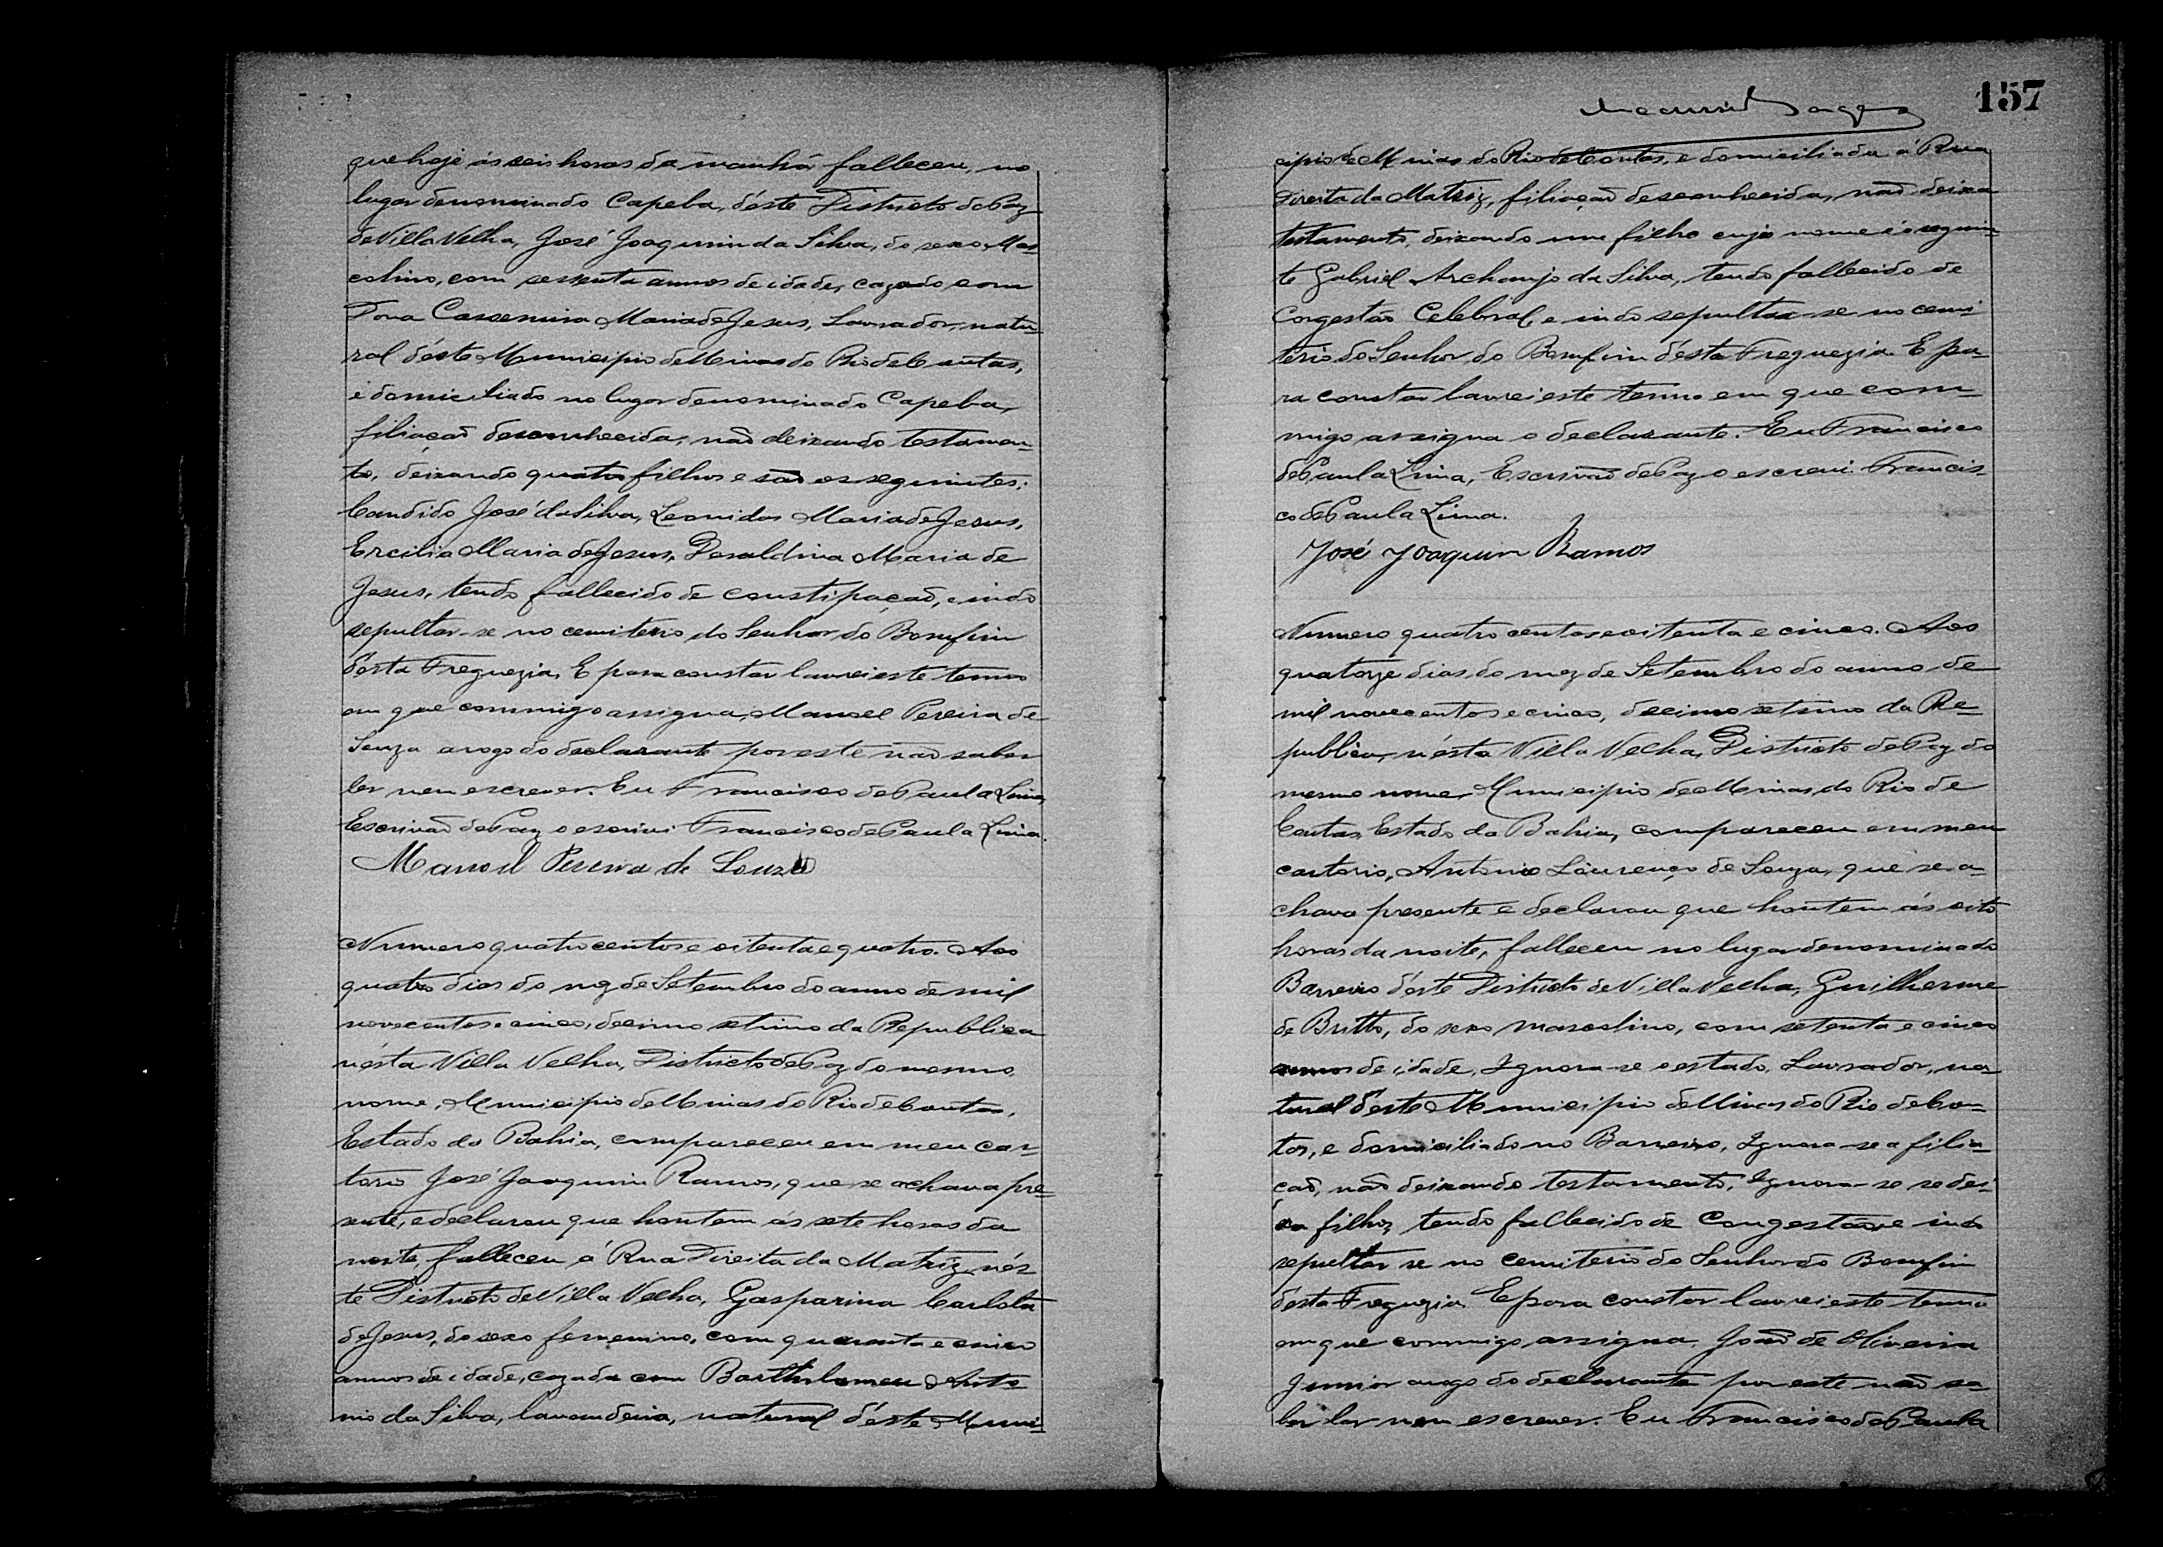 que hoje ás seis horas da manhã falleceu, no
lugar denominado Capeba, d'éste Districto de Paz
de Villa Velha, José Joaquim da Silva, do sexo Mas-
colino, com sessenta annos de idade, cazado com
Dona Cassemira Maria de Jesus, Lavrador, natu-
ral d'éste Municipio de Minas do Rio de Contas,
e domiciliado no lugar denominado Capeba,
filiação desconhecida, não deixando testamen-
to, deixando quatro filhos e são os seguintes:
Candido José da Silva, Leonidas Maria de Jesus,
Ercilia Maria de Jesus, Deraldina Maria de
Jesus, tendo fallecido de constipação, e indo
sepultar-se no cemiterio do Senhor do Bomfim
d'ésta Freguezia, E para constar lavrei este termo
em que commigo assigna, Manoel Pereira de
Souza a rogo do declarante por este não saber
ler nem escrever. Eu Francisco de Paula Lima,
Escrivão de Paz o escrivi Francisco de Paula Lima.
Manoel Pereira de Souza
Numero quatro centos e oitenta e quatro. Aos
quatro dias do mez de Setembro do anno de mil
novecentos e cinco, decimo setimo da Republica
n'ésta Villa Velha, Districto de Paz do mesmo
nome, Municipio de Minas do Rio de Contas,
Estado da Bahia, compareceu em meu car-
torio José Joaquim Ramos, que se achava pre-
sente, e declarou que hontem ás sete horas da
noite, falleceu á Rua Direita da Matriz, nés-
te Districto de Villa Velha, Gasparina Carlota
de Jesus, do sexo femenino, com quarenta e cinco
annos de idade, cazada com Bartholomeu Anto-
nio da Silva, lavandeira, natural d'éste Muni-
157
cipio de Minas do Rio de Contas, e domiciliada á Rua
Direita da Matriz, filiação desconhecida, não deixa
testamento, deixando um filho cujo nome é o seguin-
te Gabriel Archanjo da Silva, tendo fallecido de
Congestão Celebral, e indo sepultar-se no cemi-
terio do Senhor do Bomfim d'ésta Freguezia. E pa-
ra constar lavrei este termo em que com-
migo assigna o declarante. Eu Francisco
de Paula Lima, Escrivão de Paz o escrevi. Francis-
co de Paula Lima.
José Joaquim Ramos
Numero quatro centos e oitenta e cinco. Aos
quatorze dias do mez de Setembro do anno de
mil novecentos e cinco, decimo setimo da Re-
publica, n'ésta Villa Velha, Districto de Paz do
mesmo nome, Municipio de Minas do Rio de
Contas, Estado da Bahia, compareceu em meu
cartorio, Antonio Lourenço de Souza, que se a-
chava presente e declarou que hontem ás oito
horas da noite, falleceu no lugar denominado
Barreiro d'éste Districto de Villa Velha, Guilherme
de Britto, do sexo mascolino, com setenta e cinco
annos de idade, Ignora-se o estado, Lavrador, na-
tural d'éste Municipio de Minas do Rio de Con-
tas, e domiciliado no Barreiro, Ignora-se a filia-
ção, não deixando testamento, Ignora-se se dei-
xa filhos, tendo fallecido de Congestão, e indo
sepultar se no cemiterio do Senhor do Bomfim
d'ésta Freguezia. E para constar lavrei este termo
em que commigo assigna, João de Oliveira
Junior a rogo do declarante por este não sa-
ber ler nem escrever. Eu Francisco de Paula